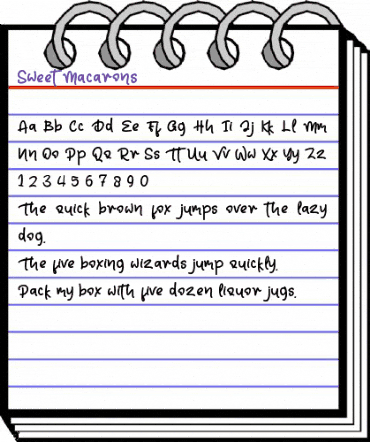 Sweet Macarons
Aa Bb Cc Dd Ee Ff Gg Hh Ii Jj Kk Ll Mm
Nn Oo Pp Qq Rr Ss Tt Uu Vv Ww Xx Yy Zz
1 2 3 4 5 6 7 8 9 0
The quick brown fox jumps over the lazy
dog.
The five boxing wizards jump quickly.
Pack my box with five dozen liquor jugs.